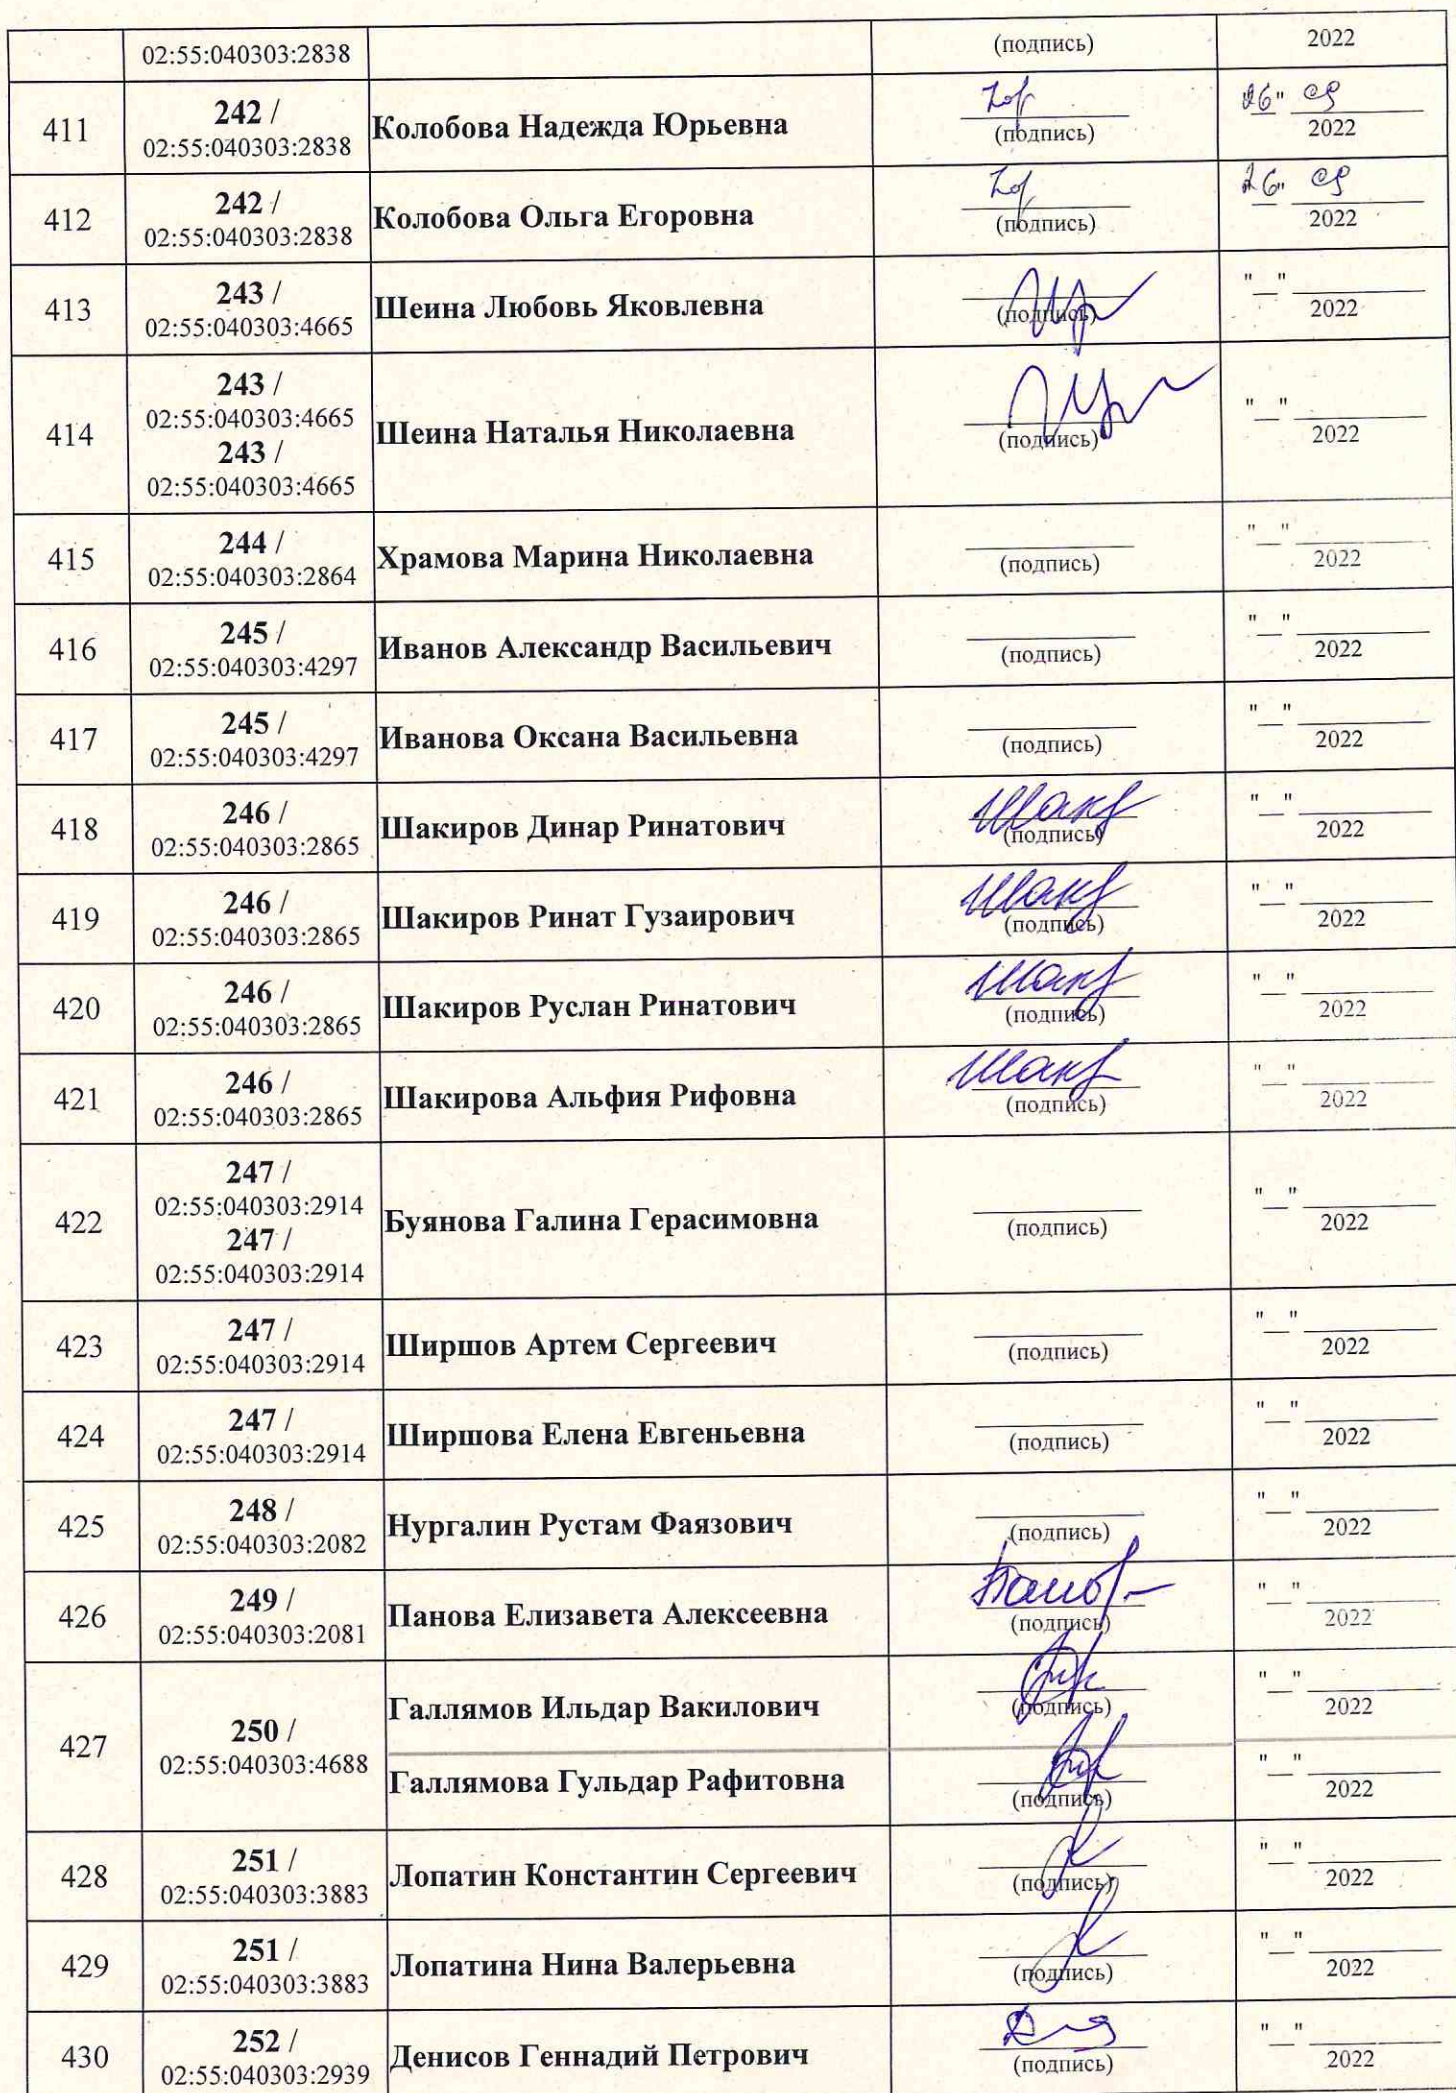 02:55:040303:2838 (подпись) 2022
411 242 / 02:55:040303:2838 Колобова Надежда Юрьевна (подпись) 26" 2022
412 242 / 02:55:040303:2838 Колобова Ольга Егоровна (подпись) 26" 2022
413 243 / 02:55:040303:4665 Шеина Любовь Яковлевна (подпись) "__" 2022
414 243 / 02:55:040303:4665 243 / 02:55:040303:4665 Шеина Наталья Николаевна (подпись) "__" 2022
415 244 / 02:55:040303:2864 Храмова Марина Николаевна (подпись) "__" 2022
416 245 / 02:55:040303:4297 Иванов Александр Васильевич (подпись) "__" 2022
417 245 / 02:55:040303:4297 Иванова Оксана Васильевна (подпись) "__" 2022
418 246 / 02:55:040303:2865 Шакиров Динар Ринатович (подпись) "__" 2022
419 246 / 02:55:040303:2865 Шакиров Ринат Гузаирович (подпись) "__" 2022
420 246 / 02:55:040303:2865 Шакиров Руслан Ринатович (подпись) "__" 2022
421 246 / 02:55:040303:2865 Шакирова Альфия Рифовна (подпись) "__" 2022
422 247 / 02:55:040303:2914 247 / 02:55:040303:2914 Буянова Галина Герасимовна (подпись) "__" 2022
423 247 / 02:55:040303:2914 Ширшов Артем Сергеевич (подпись) "__" 2022
424 247 / 02:55:040303:2914 Ширшова Елена Евгеньевна (подпись) "__" 2022
425 248 / 02:55:040303:2082 Нургалин Рустам Фаязович (подпись) "__" 2022
426 249 / 02:55:040303:2081 Панова Елизавета Алексеевна (подпись) "__" 2022
427 250 / 02:55:040303:4688 Галлямов Ильдар Вакилович (подпись) "__" 2022
Галлямова Гульдар Рафитовна (подпись) "__" 2022
428 251 / 02:55:040303:3883 Лопатин Константин Сергеевич (подпись) "__" 2022
429 251 / 02:55:040303:3883 Лопатина Нина Валерьевна (подпись) "__" 2022
430 252 / 02:55:040303:2939 Денисов Геннадий Петрович (подпись) "__" 2022